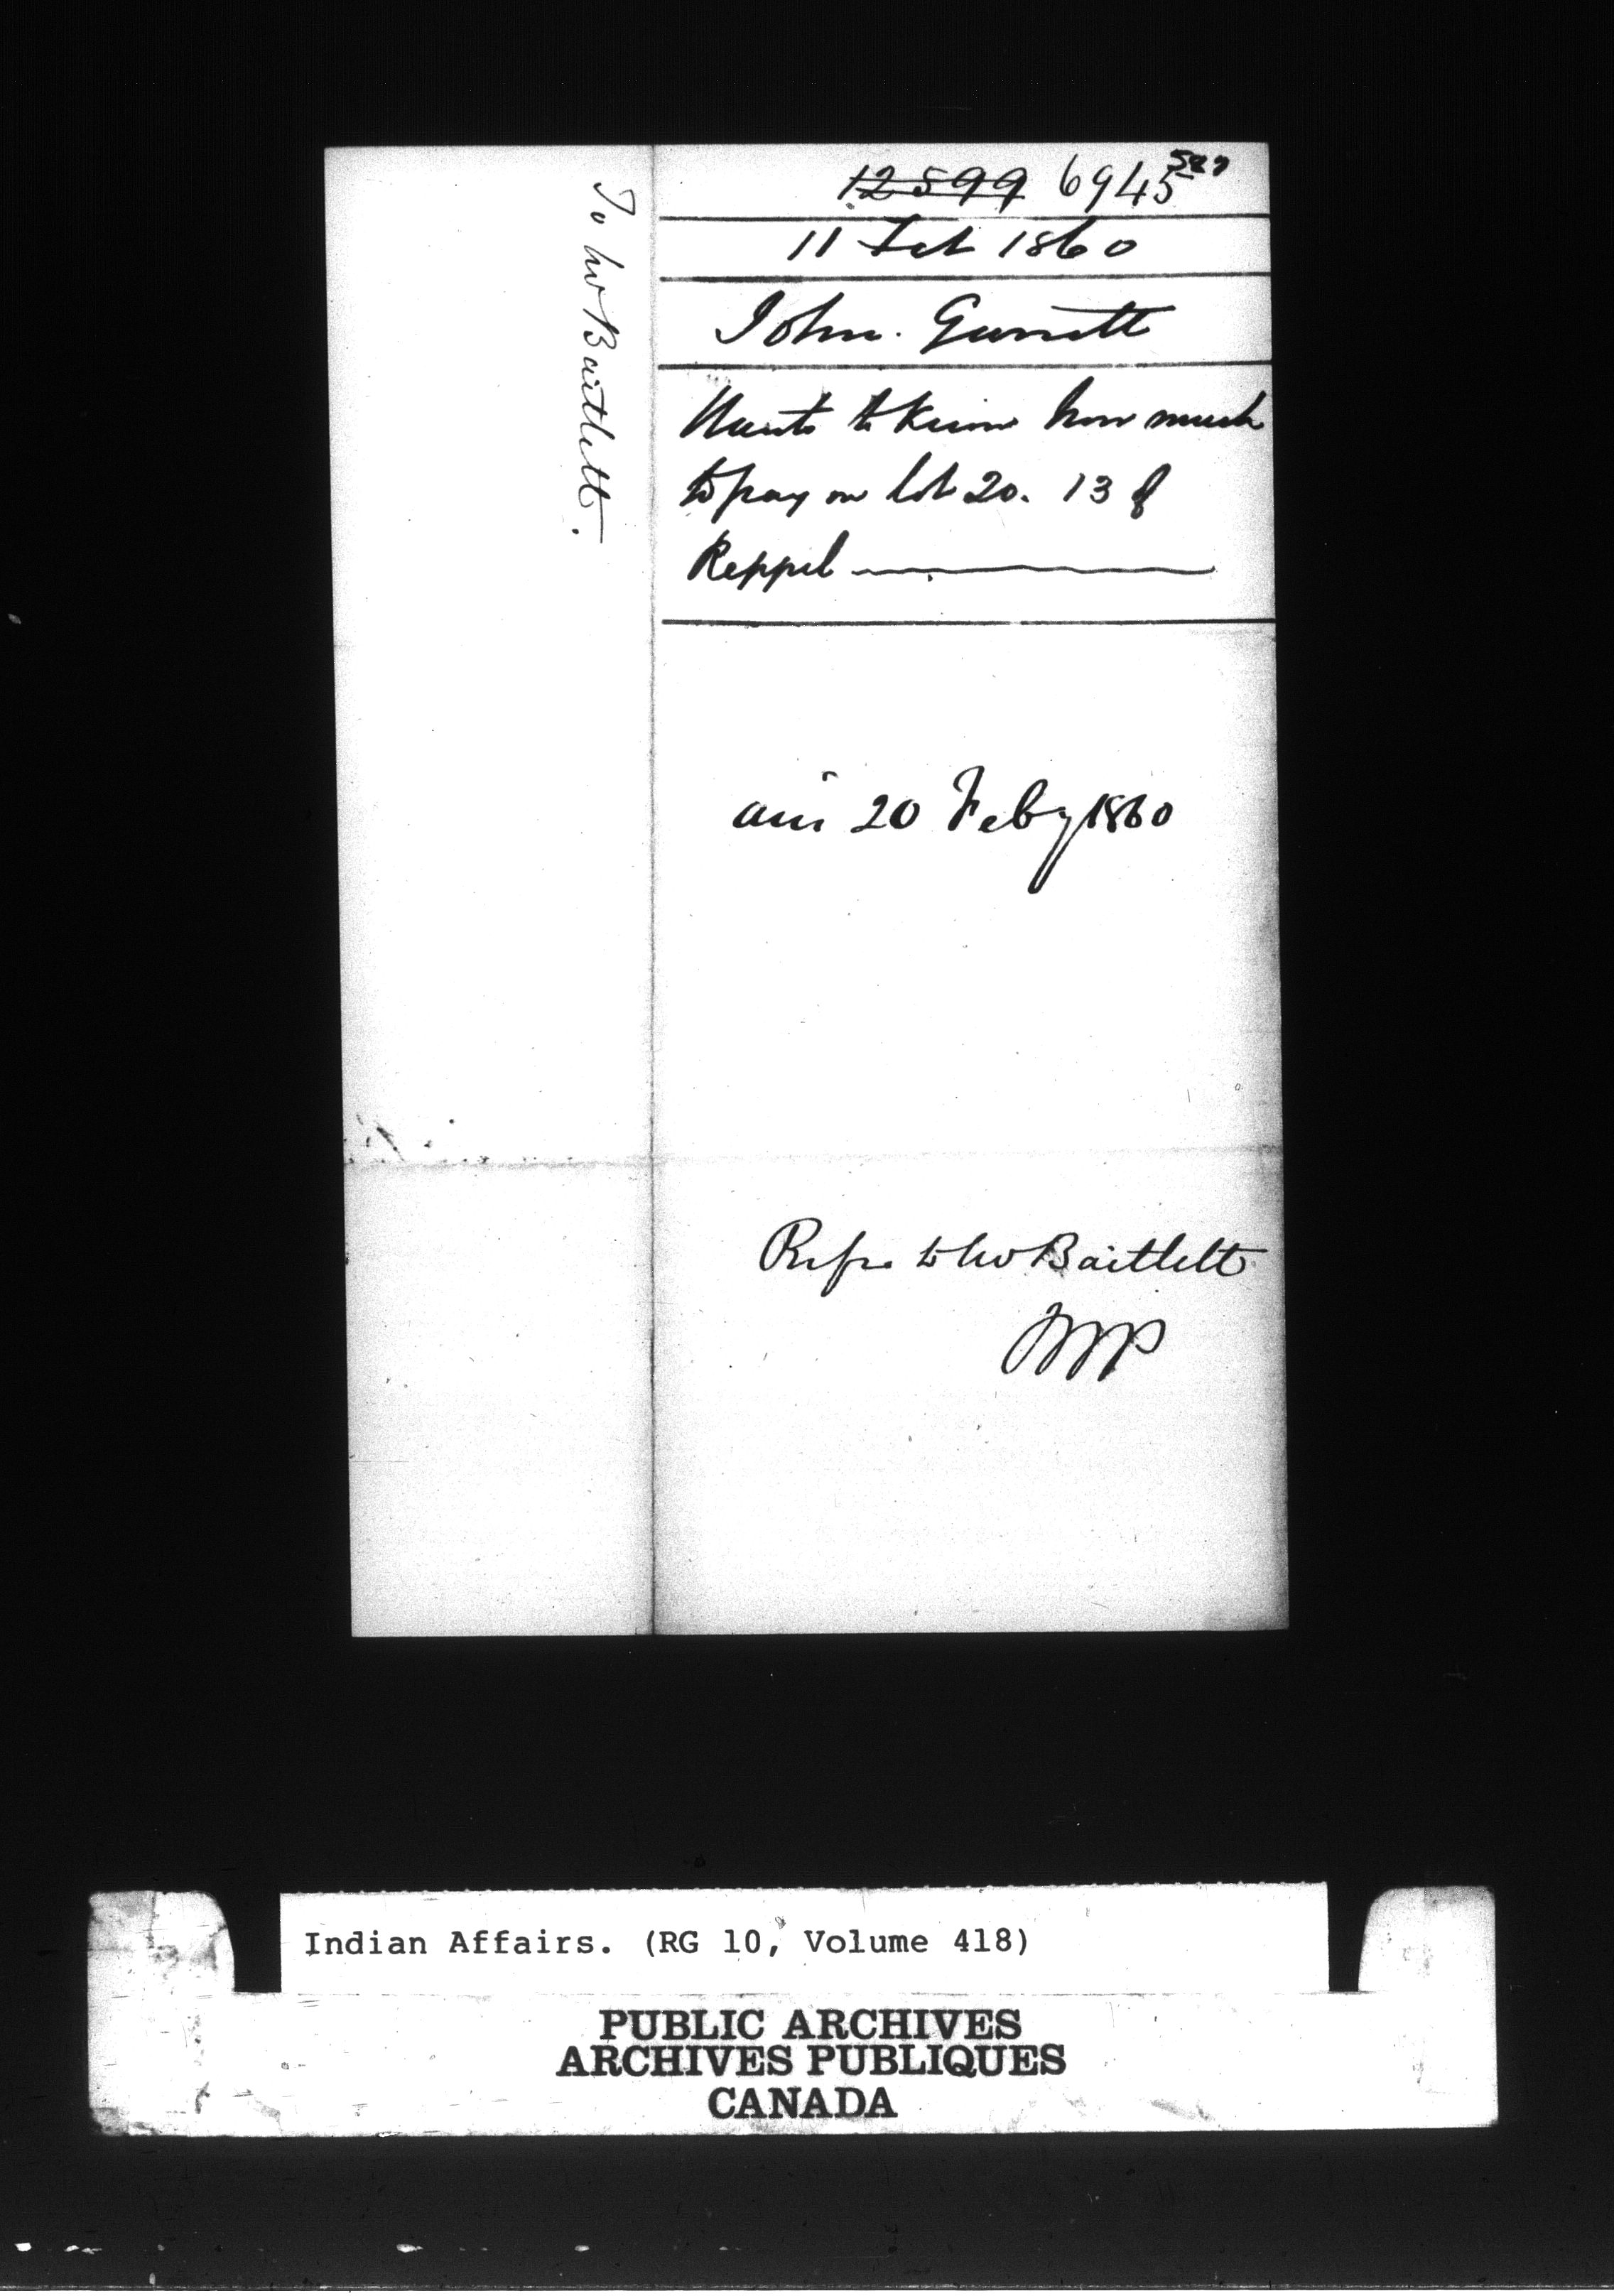 To W Bartlett.
12599 6945
527
11 Feb 1860
John. Garrett
Wants to know how much
to pay on lot 20. 13 of
Keppel
an 20 Feby 1860
Refr to W Bartlett
Indian Affairs. (RG 10, Volume 418)
PUBLIC ARCHIVES
ARCHIVES PUBLIQUES
CANADA